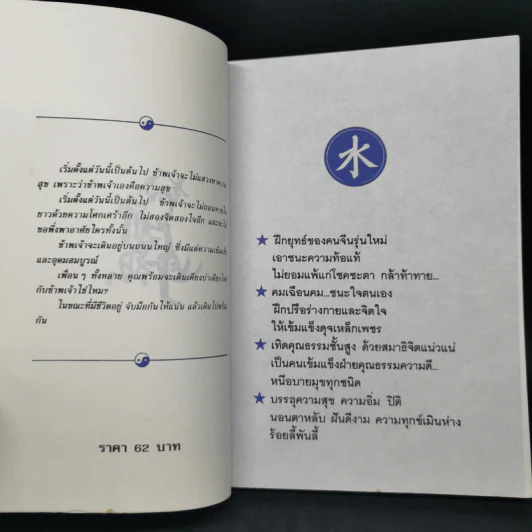 เริ่มตั้งแต่วันนี้เป็นต้นไป ข้าพเจ้าจะไม่แสวงหาความ
สุข เพราะว่าข้าพเจ้าเองคือความสุข
เริ่มตั้งแต่วันนี้เป็นต้นไป ข้าพเจ้าจะไม่ถอนหายใจ
ยาวด้วยความโศกเศร้าอีก ไม่สองจิตสองใจอีก และจะไม่
ขอพึ่งพาอาศัยใครทั้งนั้น
ข้าพเจ้าจะเดินอยู่บนถนนใหญ่ ซึ่งมีแต่ความเข้มแข็ง
และอุดมสมบูรณ์
เพื่อน ๆ ทั้งหลาย คุณพร้อมจะเดินเคียงบ่าเคียงไหล่
กับข้าพเจ้าใช่ไหม?
ในขณะที่มีชีวิตอยู่ จับมือกันให้แน่น แล้วเดินไปพร้อม
กัน
ราคา 62 บาท
水
ฝึกยุทธ์ของคนจีนรุ่นใหม่
เอาชนะความท้อแท้
ไม่ยอมแพ้แก่โชคชะตา กล้าท้าทาย...
คมเฉือนคม...ชนะใจตนเอง
ฝึกปรือร่างกายและจิตใจ
ให้เข้มแข็งดุจเหล็กเพชร
เทิดคุณธรรมชั้นสูง ด้วยสมาธิจิตแน่วแน่
เป็นคนเข้มแข็งฝ่ายคุณธรรมความดี...
หนีอบายมุขทุกชนิด
บรรลุความสุข ความอิ่ม ปิติ
นอนตาหลับ ฝันดีงาม ความทุกข์เมินห่าง
ร้อยลี้พันลี้